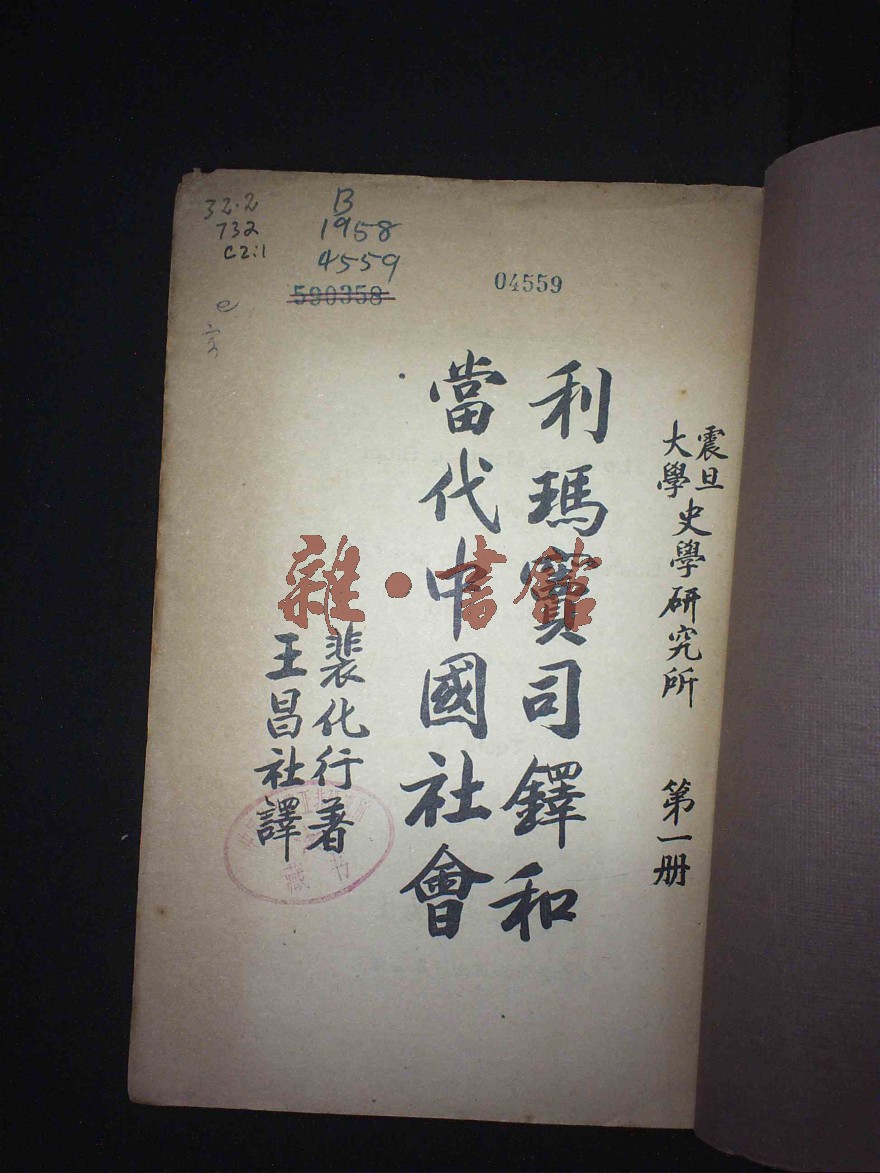 32.2
732
C2:1
B
1958
4559
590358
04559
震旦大學史學研究所 第一册
利瑪竇司鐸和
當代中國社會
裴化行著
王昌社譯
雜·書館
藏书